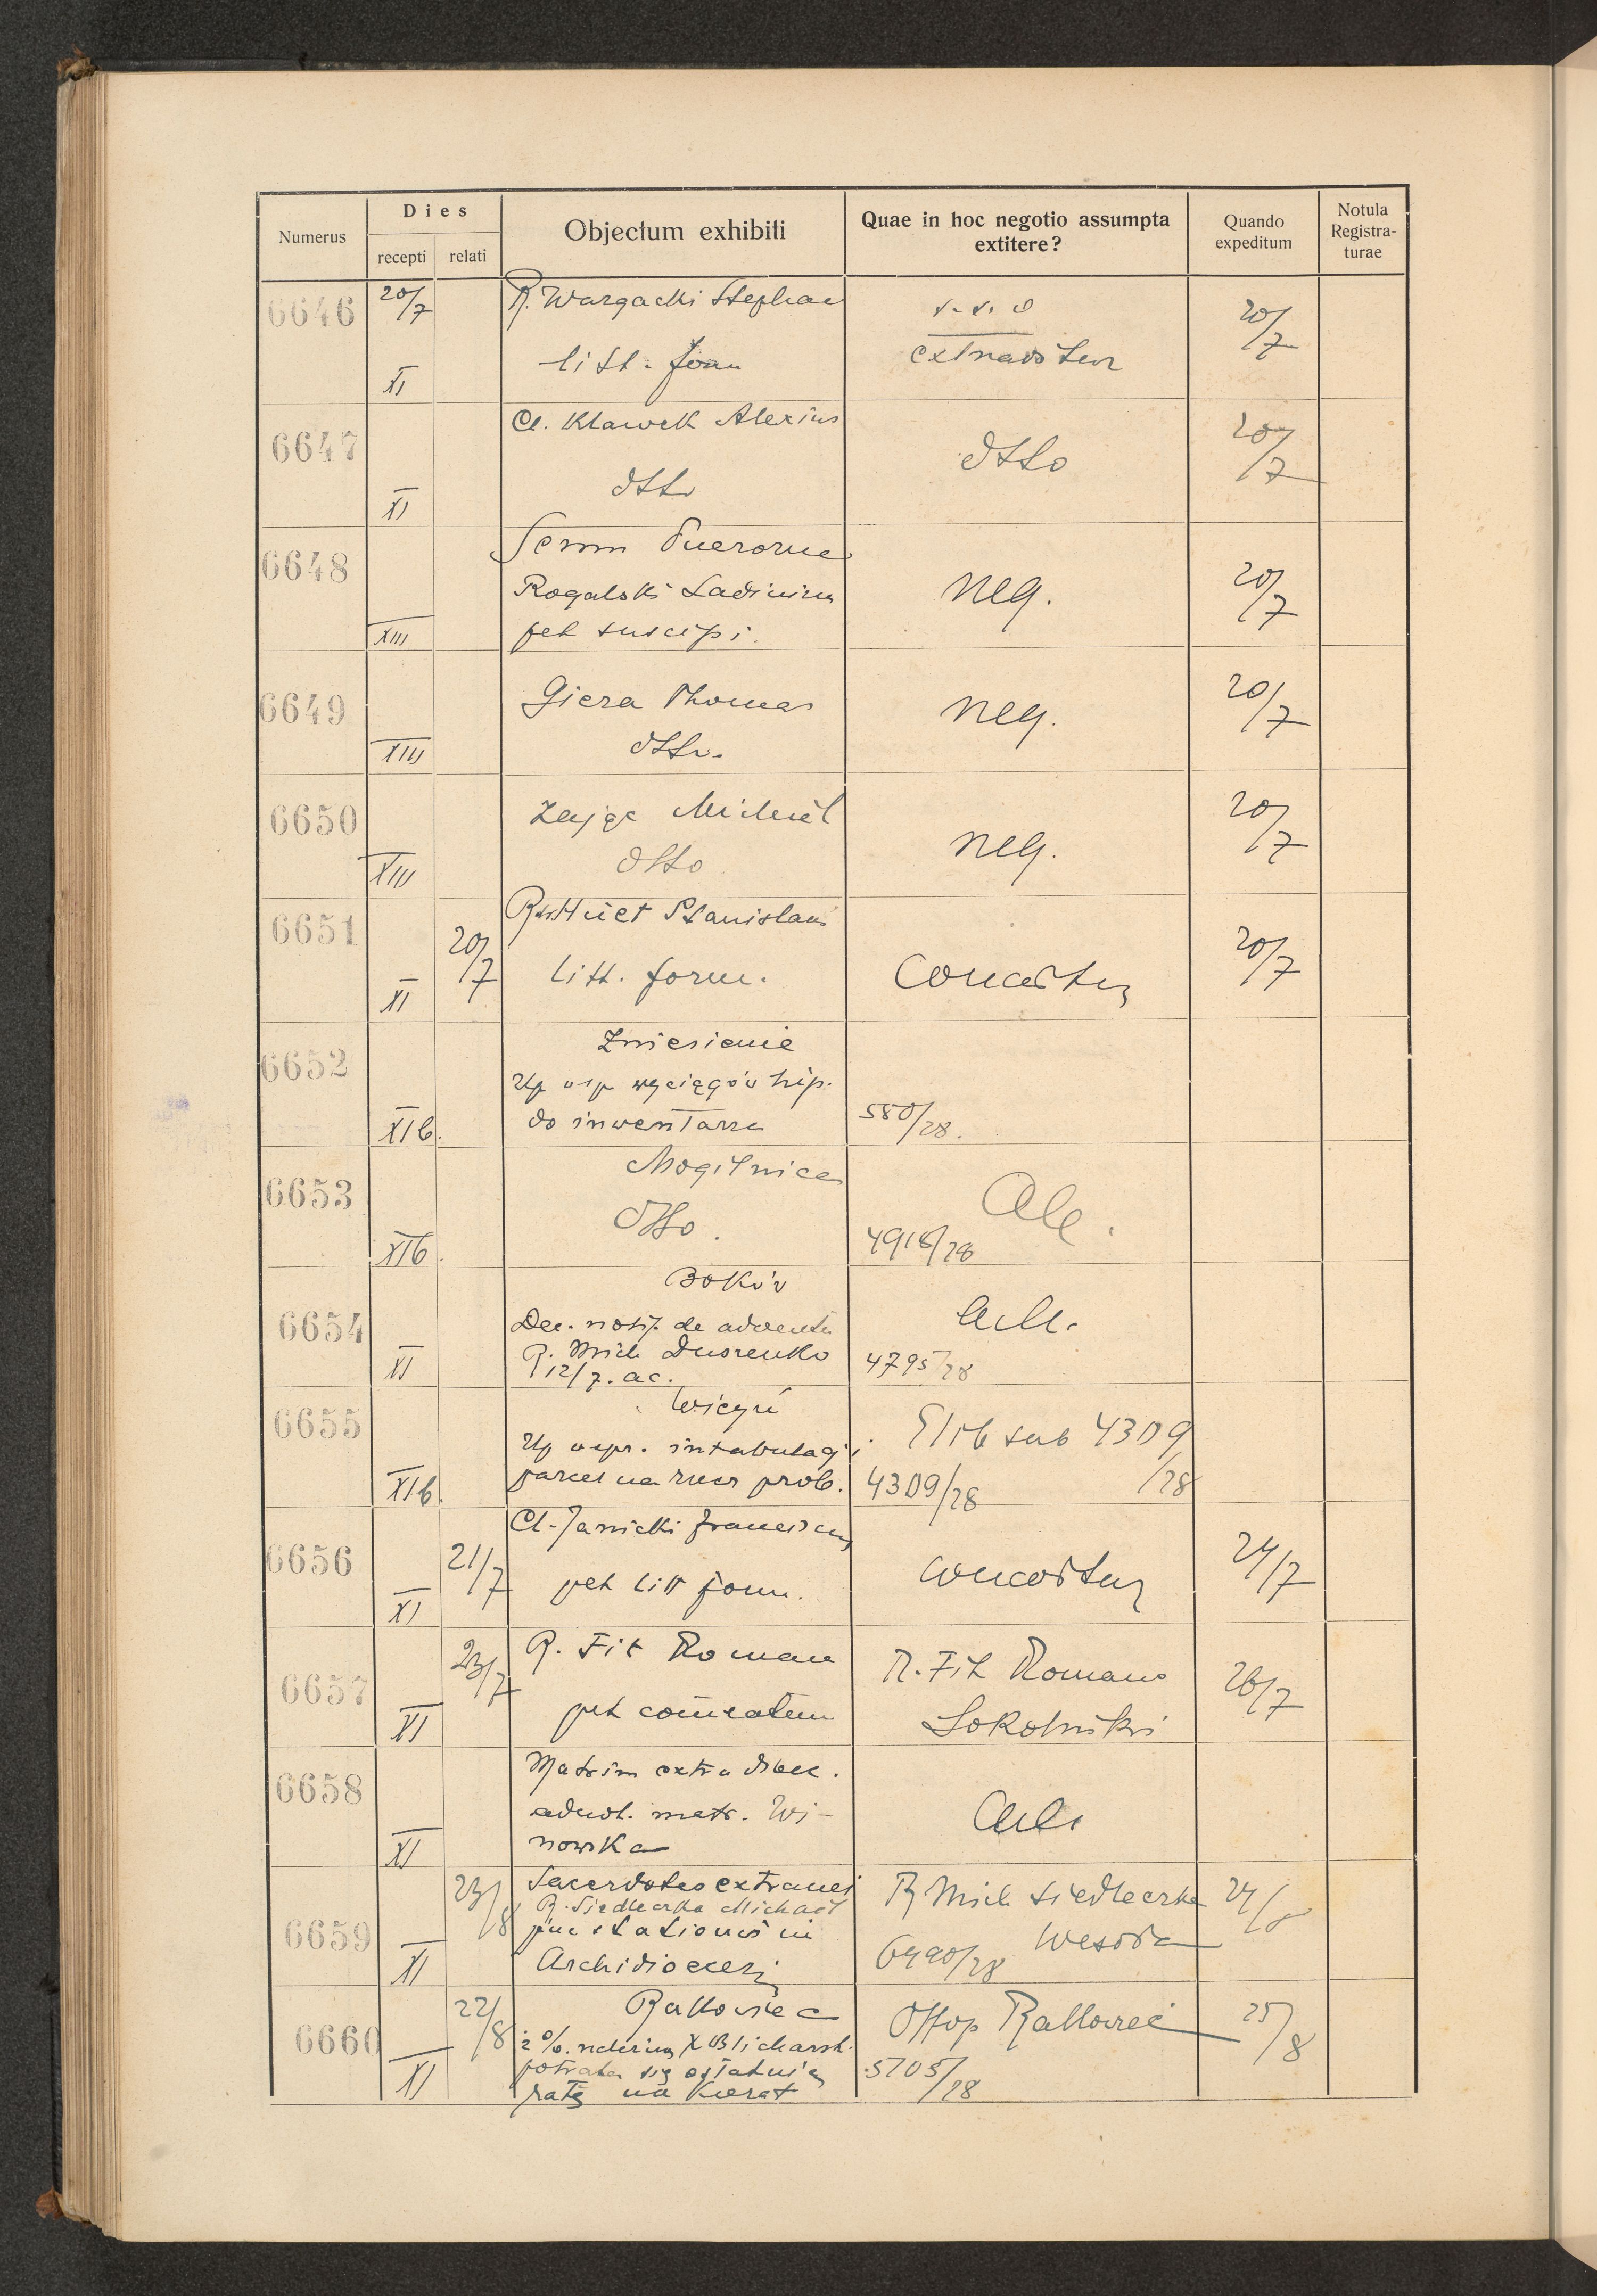 Numerus
Dies
recepti
relati
Objectum exhibiti
Quae in hoc negotio assumpta
extitere?
Quando
expeditum
Notula
Registra-
turae
6646
20/7
XI
R. Wargacki Stephan
litt. form
extradstur
20/7
6647
XI
Cl. Klawek Alexius
dtto
dtto
20/7
6648
XIII
Puerorum
Rogalski Ladinium
pet suscipi.
neg.
20/7
6649
XIII
Giera Thomas
dtto.
neg.
20/7
6650
XIII
Zając Michael
dtto
neg.
20/7
6651
XI
20/7
Huet Stanislaus
litt. form.
20/7
6652
XIb.
Zniesienie
Up usp wyciągów hip.
do inwentarza
580/28.
6653
XIb.
Mogilnica
dtto.
4918/28
6654
XI
Boków
Dec. notif. de adventu
R. Mich Dusrenko
12/7. ac.
4795/28
6655
XIb.
Wicyń
Up uspr. intabulacji
parcel na rzecz prob.
sub 4309
/28
4309/28
6656
XI
21/7
Cl. Janicki Franciscus
pet litt form.
24/7
6657
XI
23/7
R. Fit Roman
pet comeatum
R. Fit Romano
Sokolniki
26/7
6658
XI
Matrim extra dioec.
adnot. matr. Wi-
nowska
6659
XI
23/8
Sacerdotes extranei
R. Siedleczka Michael
stationis in
Archidioecesi
R Mich Siedleczka
Wesoła
6490/28
24/8
6660
XI
22/8
Rakowiec
2%. X Blicharsk.
potrąca się ostatnią
ratę na Kwest
Rakowiec
5705/28
25/8